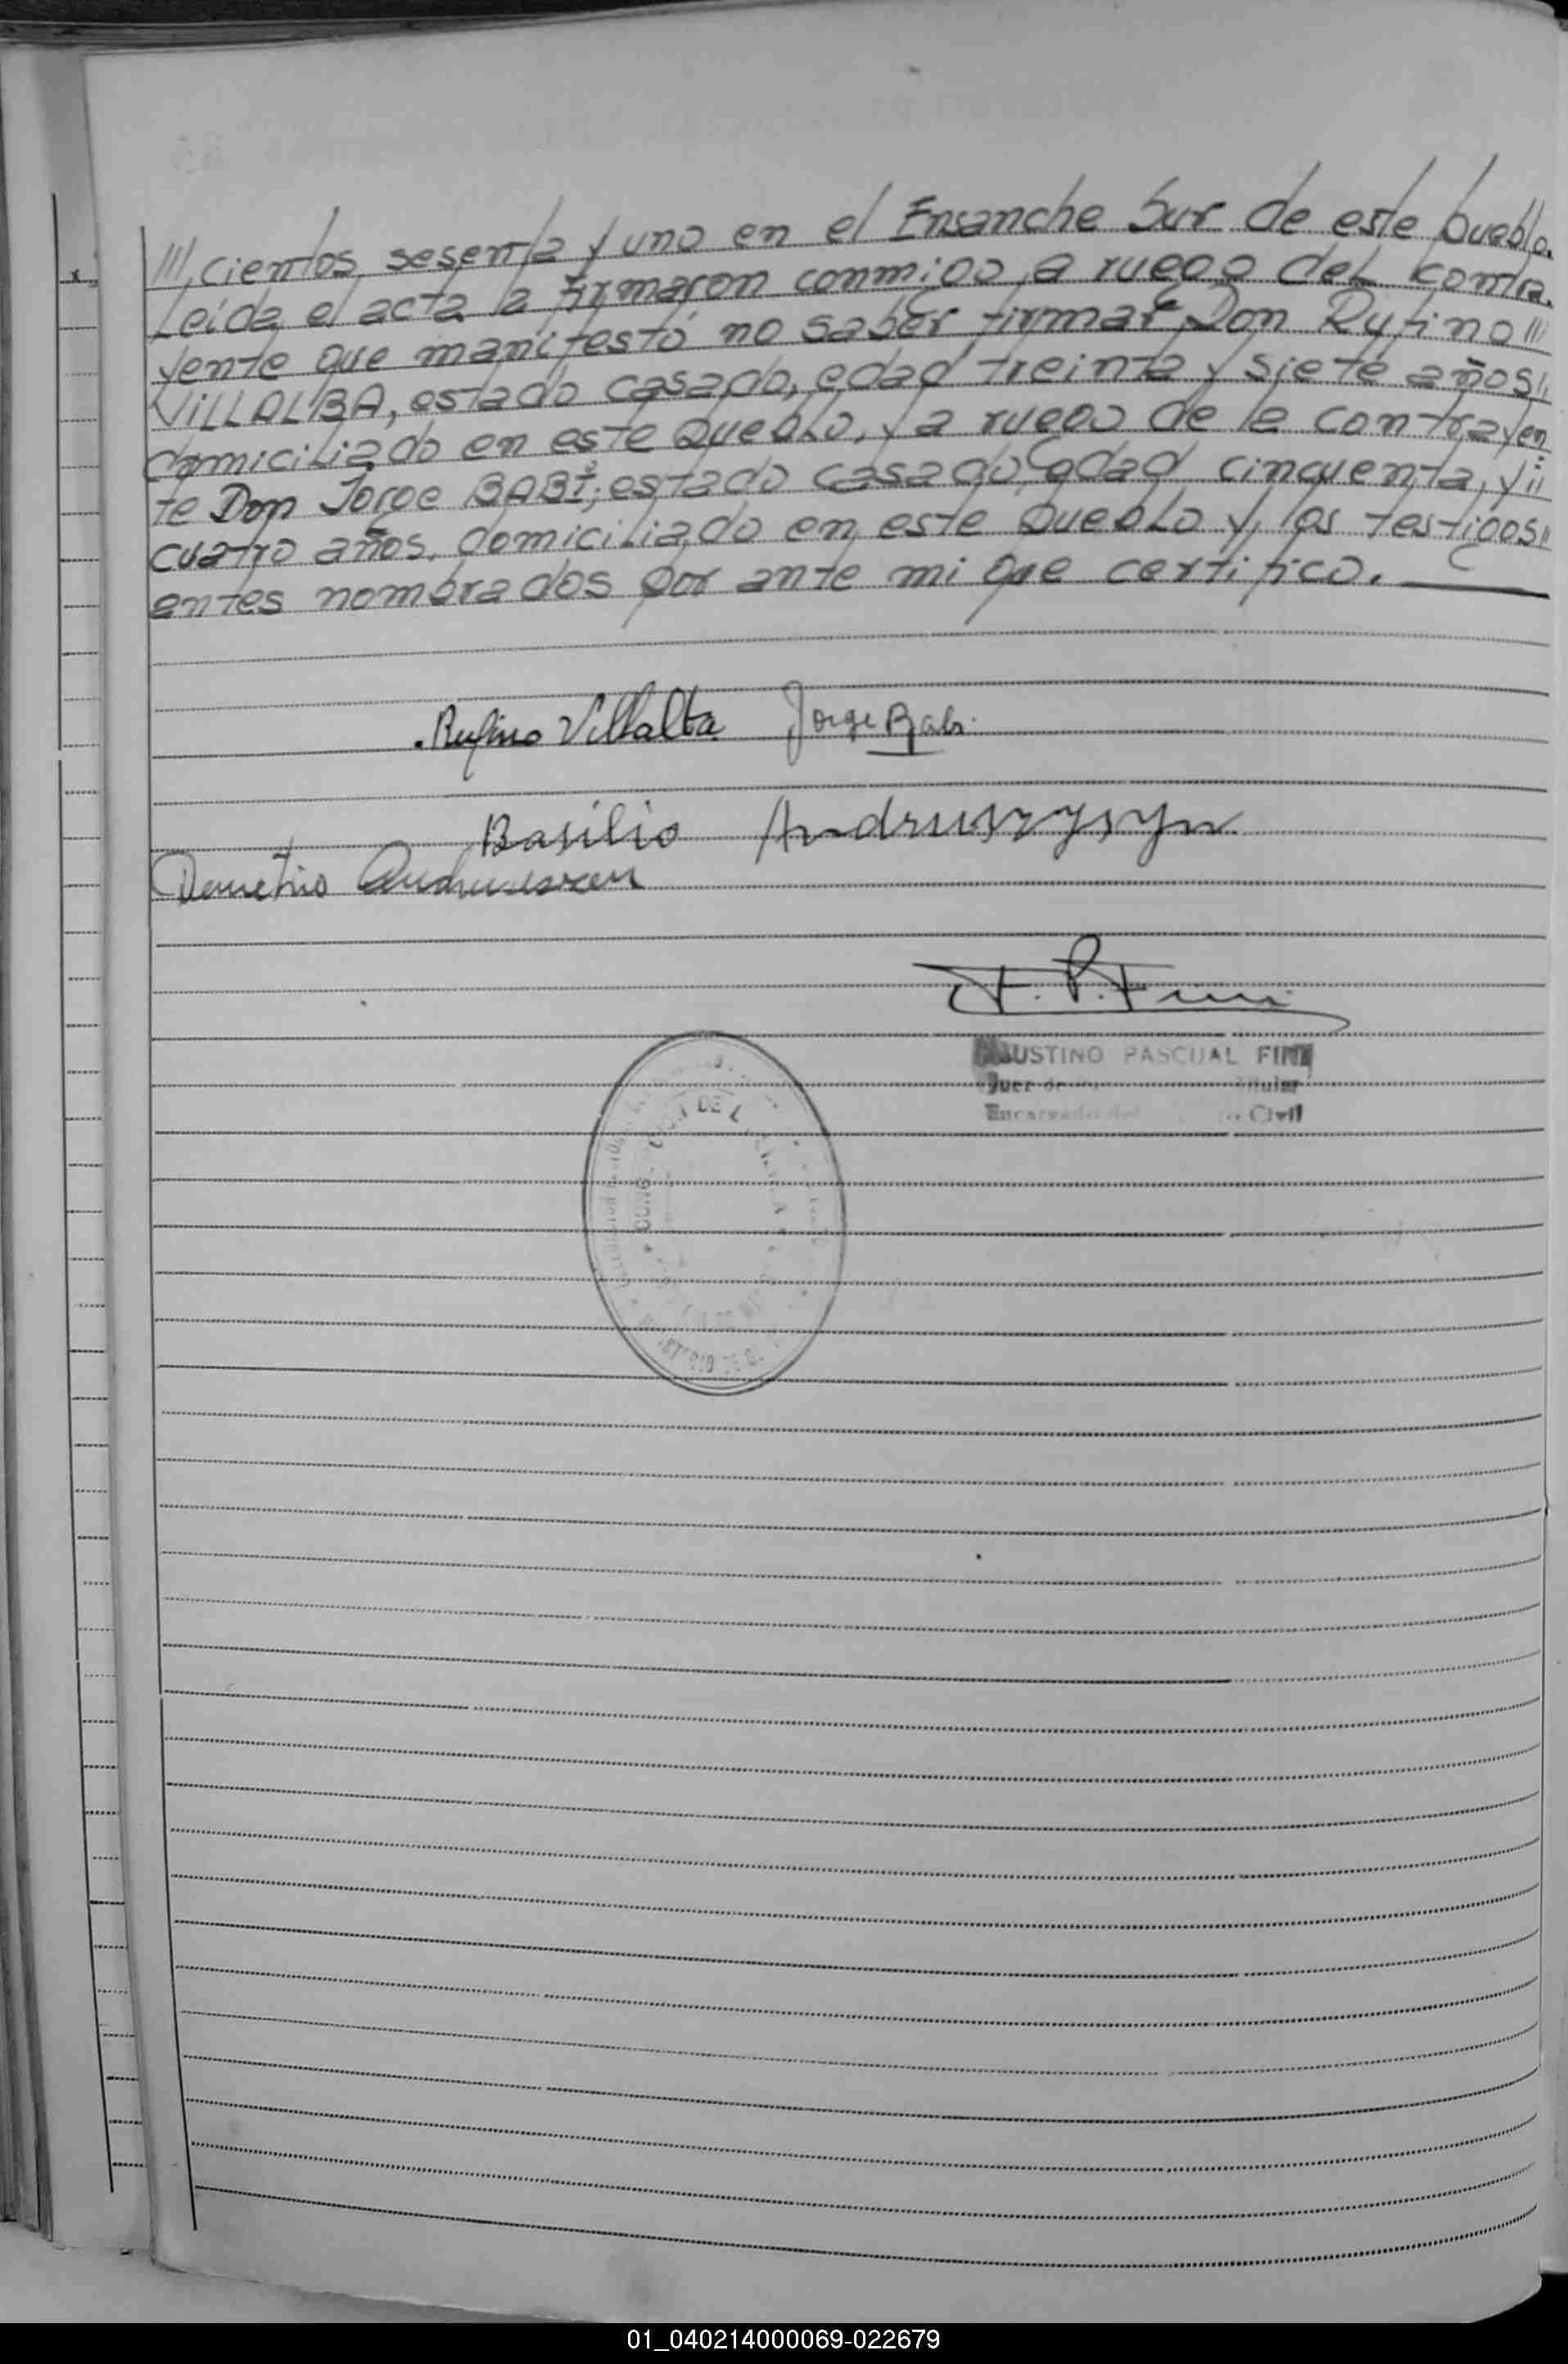 cientos sesenta y uno en el Ensanche Sur de este pueblo.
Leida el acta la firmaron conmigo, a ruego del contra.
yente que manifestó no saber firmar Don Rufino
VILLALBA, estado casado, edad treinta y siete años
domiciliado en este pueblo, y a ruego de la contrayen
te Don Jorge BABI; estado casado, edad cincuenta y
cuatro años, domiciliado en este pueblo y los testigos
antes nombrados por ante mi que certifico.
Rufino Villalba Jorge Babi
Basilio Andruszyszyn
Demetrio
F. P. Fini
FAUSTINO PASCUAL FINI
Juez de Titular
Encargado del Civil
DE
01_040214000069-022679